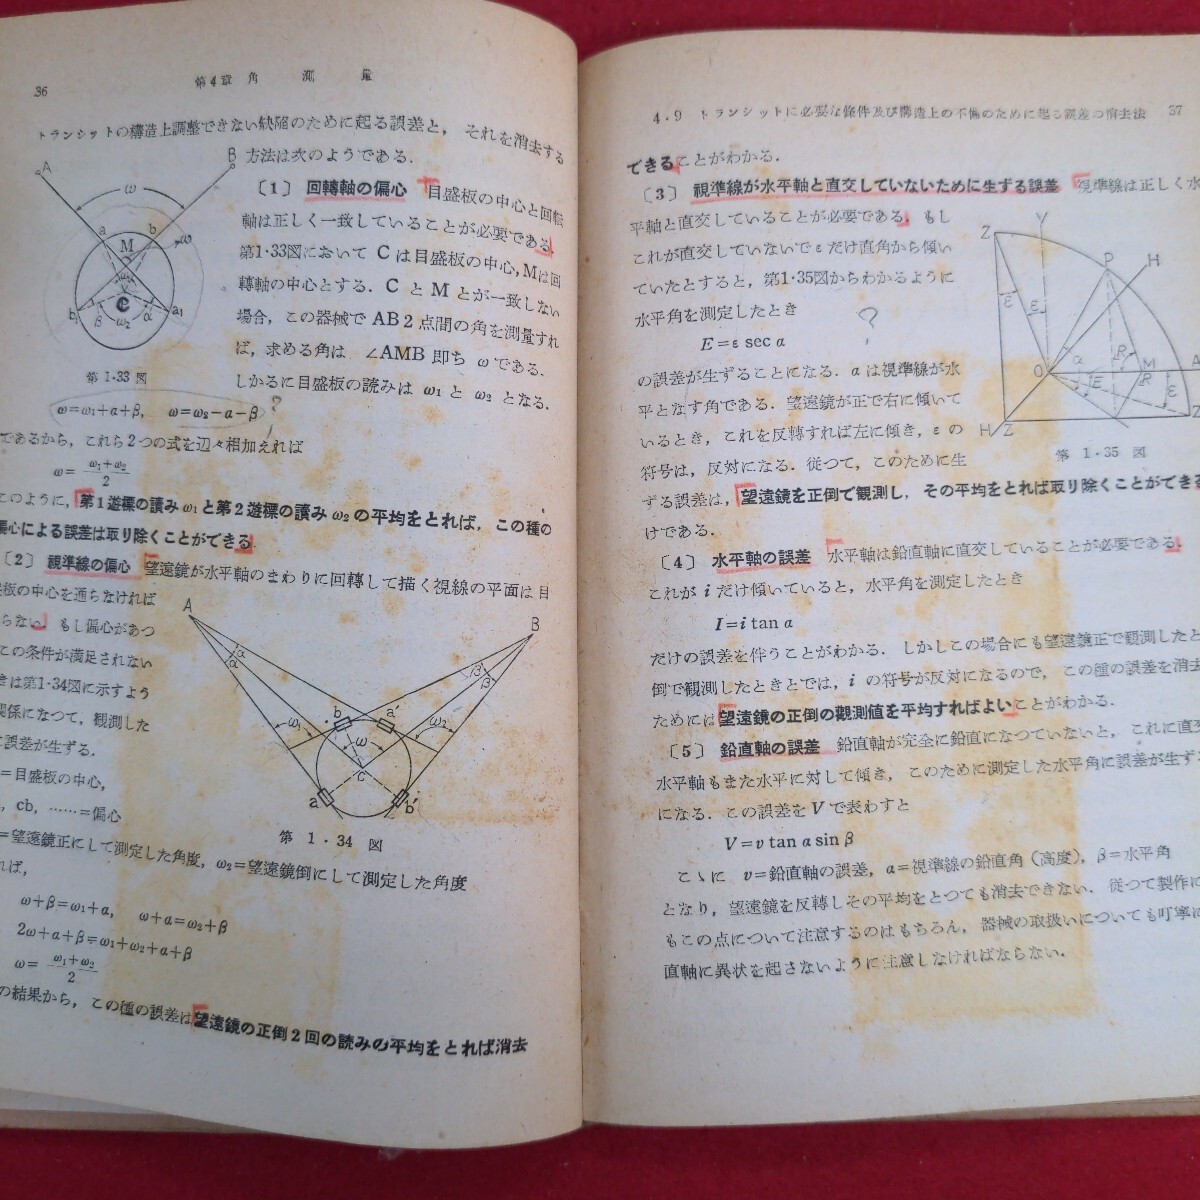 36
第4章 角 測 量
トランシットの構造上調整できない缺陥のために起る誤差と，それを消去する
方法は次のようである．
〔1〕 回轉軸の偏心 目盛板の中心と回転
軸は正しく一致していることが必要である
第1·33図において Cは目盛板の中心，Mは回
轉軸の中心とする．C と M とが一致しない
場合，この器械で AB 2 点間の角を測量すれ
ば，求める角は ∠AMB 即ち ω である．
しかるに目盛板の読みは ω₁ と ω₂ となる．
A
B
ω
a
M
b
ω
C
b₁
β
ω₂
α
a₁
第 1·33 図
ω=ω₁+α+β, ω=ω₂-α-β ?
であるから，これら2つの式を辺々相加えれば
ω= ω₁+ω₂ / 2
このように，第1遊標の讀み ω₁ と第2遊標の讀み ω₂ の平均をとれば，この種の
偏心による誤差は取り除くことができる
〔2〕 視準線の偏心 望遠鏡が水平軸のまわりに回轉して描く視線の平面は目
板の中心を通らなければ
らない もし偏心があつ
この条件が満足されない
きは第1·34図に示すよう
関係になつて，観測した
に誤差が生ずる．
=目盛板の中心，
, cb, ……=偏心
A
B
α
α
β
β
ω₁
b
a'
ω
ω₂
c
a
b'
第 1·34 図
=望遠鏡正にして測定した角度，ω₂=望遠鏡倒にして測定した角度
れば，
ω+β=ω₁+α, ω+α=ω₂+β
2ω+α+β=ω₁+ω₂+α+β
ω= ω₁+ω₂ / 2
の結果から，この種の誤差は望遠鏡の正倒2回の読みの平均をとれば消去
4·9 トランシットに必要な條件及び構造上の不備のために起る誤差の消去法 37
できることがわかる．
〔3〕 視準線が水平軸と直交していないために生ずる誤差 視準線は正しく水
平軸と直交していることが必要である．もし
これが直交していないで ε だけ直角から傾い
ていたとすると，第1·35図からわかるように
水平角を測定したとき ?
E=ε sec α
の誤差が生ずることになる．α は視準線が水
平となす角である．望遠鏡が正で右に傾いて
いるとき，これを反轉すれば左に傾き，ε の
符号は，反対になる．従つて，このために生
ずる誤差は，望遠鏡を正倒で観測し，その平均をとれば取り除くことができる
けである．
Z
Y
P
H
ε
ε
O
α
R
M
A
E
R
ε
H
Z
Z
第 1·35 図
〔4〕 水平軸の誤差 水平軸は鉛直軸に直交していることが必要である．
これが i だけ傾いていると，水平角を測定したとき
I=i tan α
だけの誤差を伴うことがわかる．しかしこの場合にも望遠鏡正で観測したと
倒で観測したときとでは，i の符号が反対になるので，この種の誤差を消去
ためには望遠鏡の正倒の観測値を平均すればよいことがわかる．
〔5〕 鉛直軸の誤差 鉛直軸が完全に鉛直になつていないと，これに直交
水平軸もまた水平に対して傾き，このために測定した水平角に誤差が生ず
になる．この誤差を V で表わすと
V=v tan α sin β
こゝに v=鉛直軸の誤差，α=視準線の鉛直角（高度），β=水平角
となり，望遠鏡を反轉しその平均をとつても消去できない．従つて製作に
もこの点について注意するのはもちろん，器械の取扱いについても叮寧に
直軸に異状を起さないように注意しなければならない．